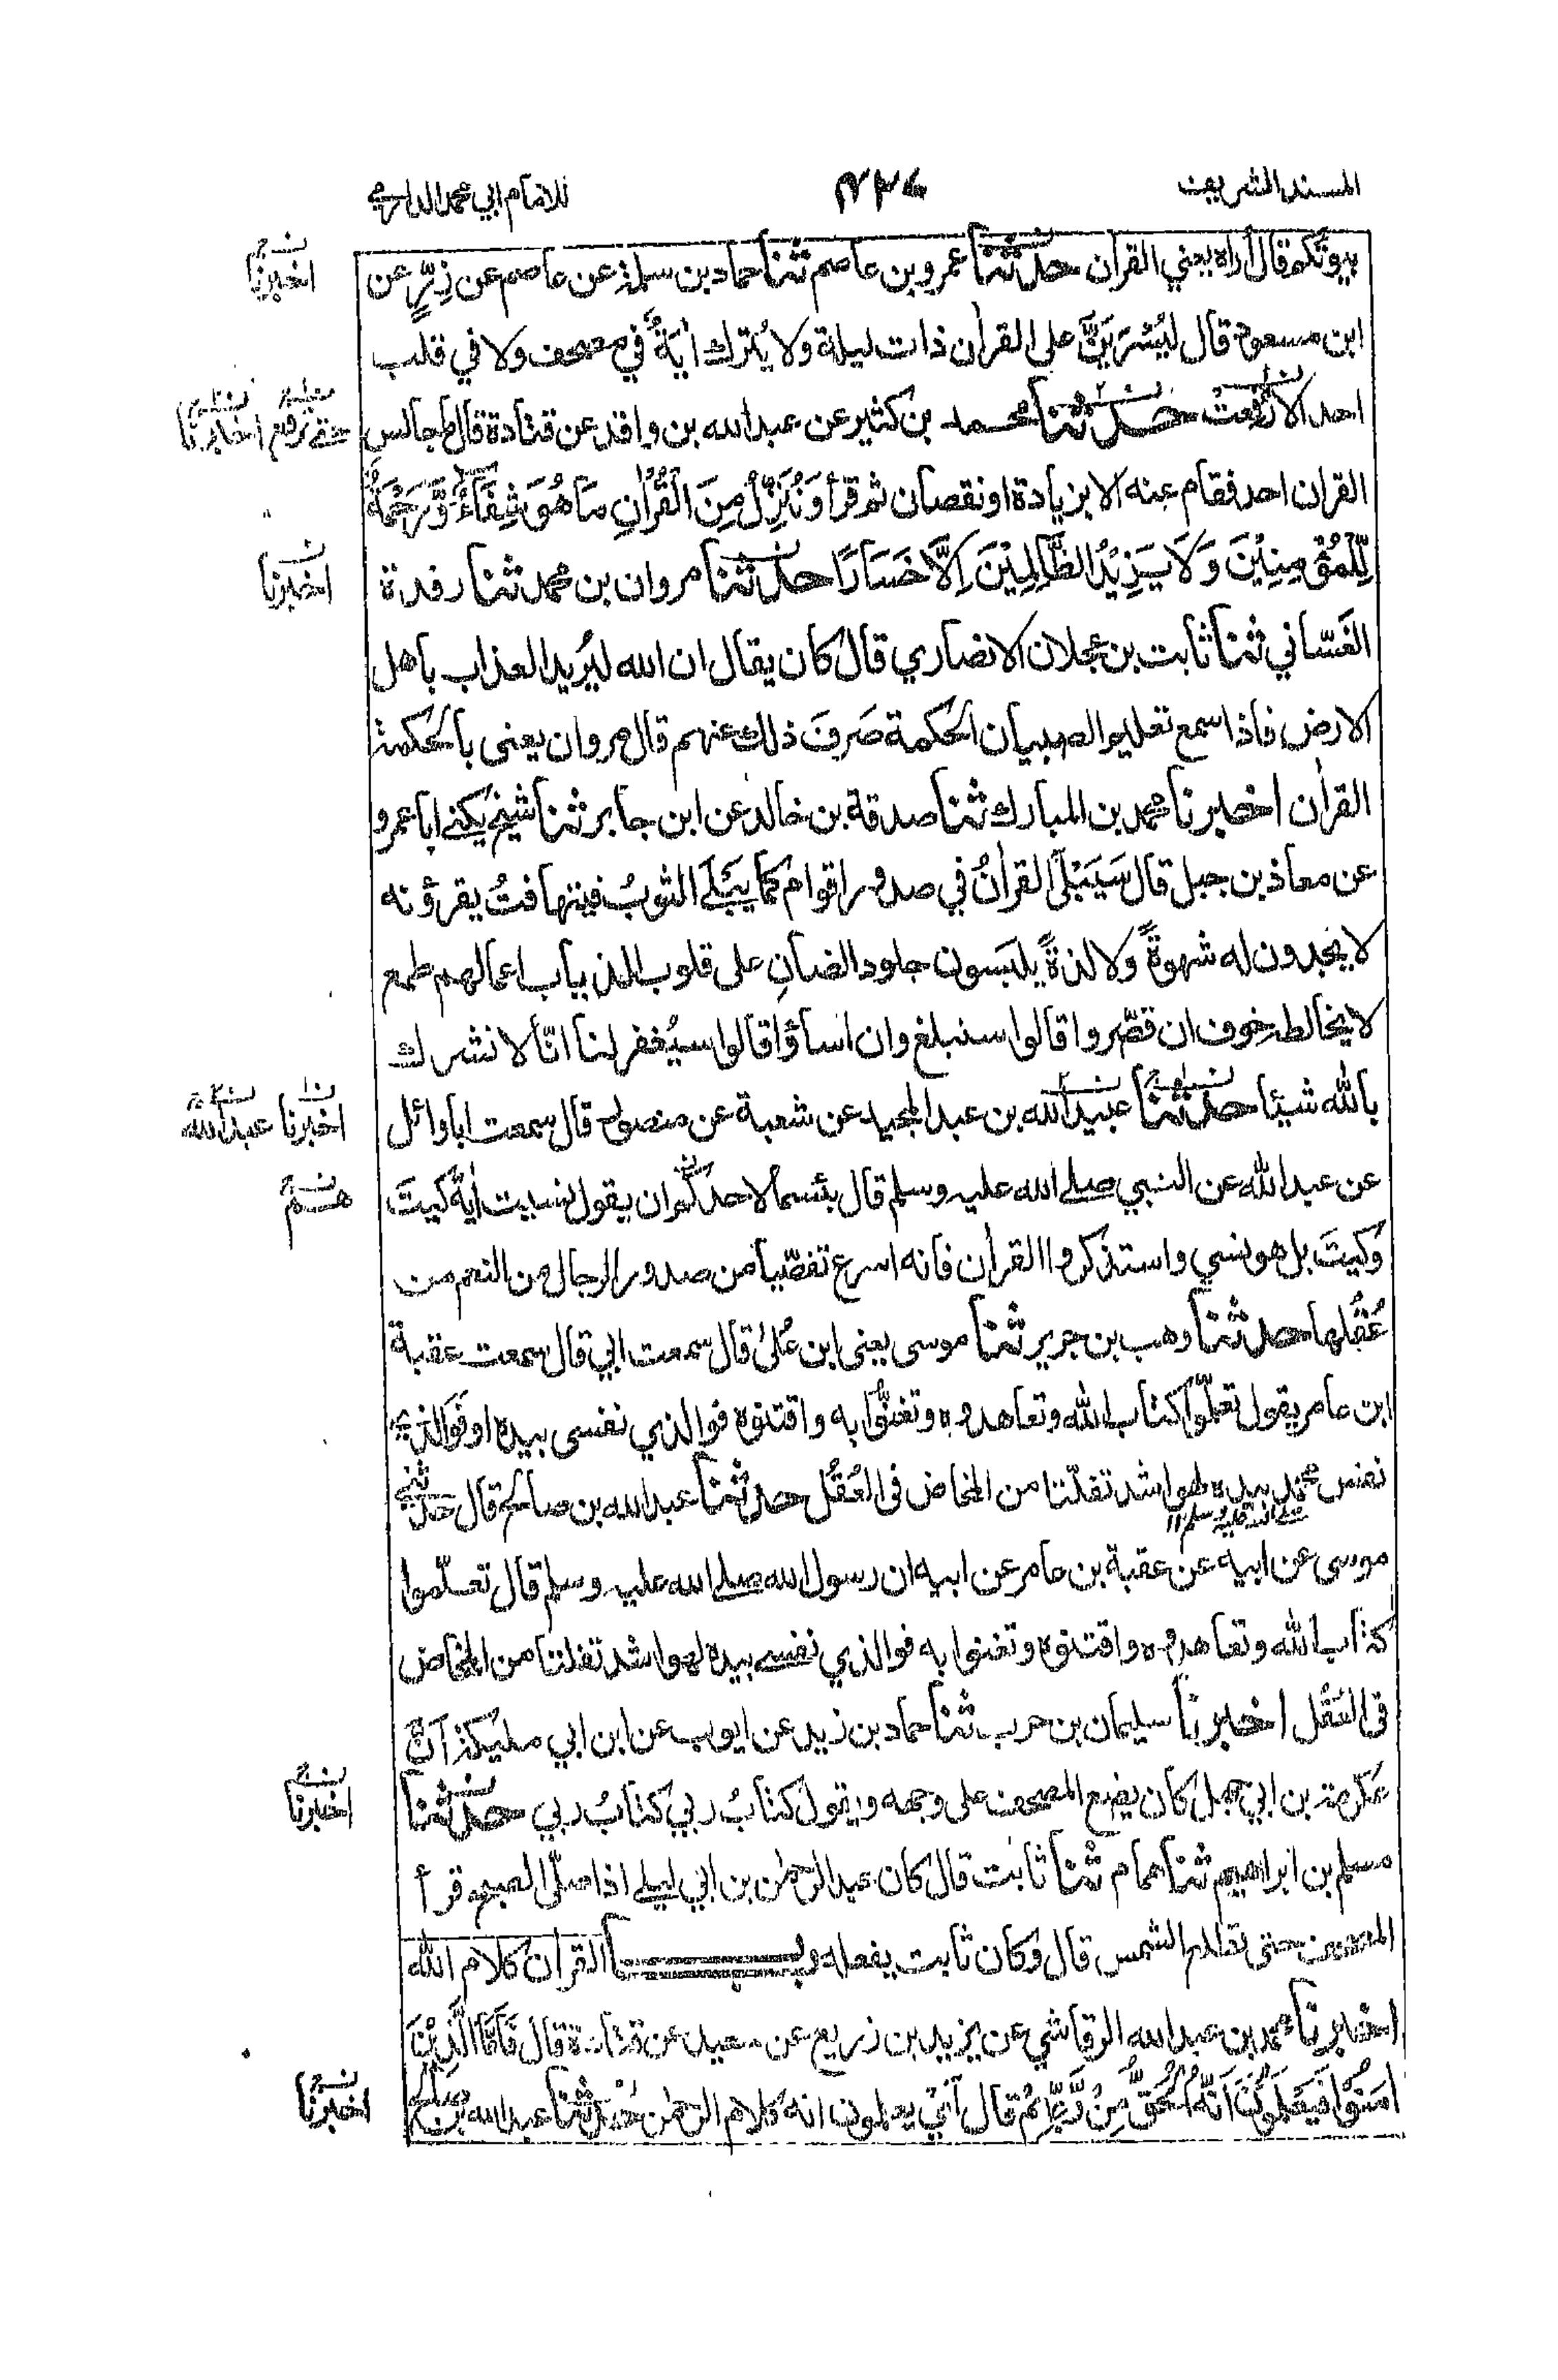 المسند الشريف
للامام ابي محمد الدارمي
بيوتكم قال أراه يعني القران حدثنا عمرو بن عاصم ثنا حماد بن سلمة عن عاصم عن زِرٍّ عن
اخبرنا
ابن مسعود قال ليُسْرَيَنَّ على القران ذات ليلة ولا يُترك اٰيَةٌ في مصحف ولا في قلب
احد الا رُفِعتْ حدثنا محمد بن كثير عن عبد الله بن واقد عن قتادة قال ما جالس
حتى ترفع اخبرنا
القران احد فقام عنه الا بزيادة او نقصان ثم قرأ وَنُنَزِّلُ مِنَ الْقُرْاٰنِ مَا هُوَ شِفَآءٌ وَّرَحْمَةٌ
لِّلْمُؤْمِنِيْنَ وَلَا يَزِيْدُ الظَّالِمِيْنَ اِلَّا خَسَارًا حدثنا مروان بن محمد ثنا رفدة
اخبرنا
الغسّاني ثنا ثابت بن عجلان الانصاري قال كان يقال ان الله ليُريد العذاب باهل
الارض فاذا سمع تعليم الصبيان الحكمة صَرفَ ذلك عنهم قال مروان يعنى بالحكمة
القراٰن اخبرنا محمد بن المبارك ثنا صدقة بن خالد عن ابن جابر ثنا شيخ يكنى ابا عمرو
عن معاذ بن جبل قال سَيَبْلَى القراٰنُ في صدور اقوام كما يَبْلَى الثوبُ فيتهافتُ يقرؤنه
لا يجدون له شهوةً ولا لذةً يلبسون جلود الضأنِ على قلوب الذياب اعمالهم طمع
لا يخالطه خوف ان قصّروا قالوا سنبلغ وان اساؤا قالوا سيُغفر لنا انّا لا نشرك
بالله شيئا حدثنا عبيد الله بن عبد المجيد عن شعبة عن منصور قال سمعت ابا وائل
اخبرنا عبد الله
عن عبد الله عن النبي صلى الله عليه وسلم قال بئسما لاحدكم ان يقول نسيت اٰية كيتَ
وكيتَ بل هو نسي واستذكروا القراٰن فانه اسرع تفصّيا من صدور الرجال من النعم من
عُقُلها حدثنا وهب بن جرير ثنا موسى يعنى ابن عُلىٰ قال سمعت ابي قال سمعت عقبة
ابن عامر يقول تعلّموا كتاب الله وتعاهدوه وتغنُّوا به واقتنوه فوالذي نفسى بيده او فوالذي
نفس محمد بيده لهو اشد تفلّتا من المخاض فى العُقُل حدثنا عبد الله بن صالح قال حدثني
صلى الله عليه وسلم ١٢
موسى عن ابيه عن عقبة بن عامر عن ابيه ان رسول الله صلى الله عليه وسلم قال تعلّموا
كتاب الله وتعاهدوه واقتنوه وتغنوا به فوالذي نفسي بيده لهو اشد تفلتا من المخاض
فى العُقُل اخبرنا سليمان بن حرب ثنا حماد بن زيد عن ايوب عن ابن ابي مليكة انَّ
عكرمة بن ابي جهل كان يضع المصحف على وجهه ويقول كتابُ ربي كتابُ ربي حدثنا
اخبرنا
مسلم بن ابراهيم ثنا همام ثنا ثابت قال كان عبد الرحمٰن بن ابي ليلى اذا صلّى الصبح قرأ
المصحف حتى تطلع الشمس قال وكان ثابت يفعله باب القراٰن كلام الله
اخبرنا محمد بن عبد الله الرقاشي عن يزيد بن زريع عن سعيد عن قتادة قال فَاَمَّا الَّذِيْنَ
اٰمَنُوْا فَيَعْلَمُوْنَ اَنَّهُ الْحَقُّ مِنْ رَّبِّهِمْ قال أَيْ يعلمون انه كلام الرحمٰن حدثنا عبد الله بن صالح
اخبرنا